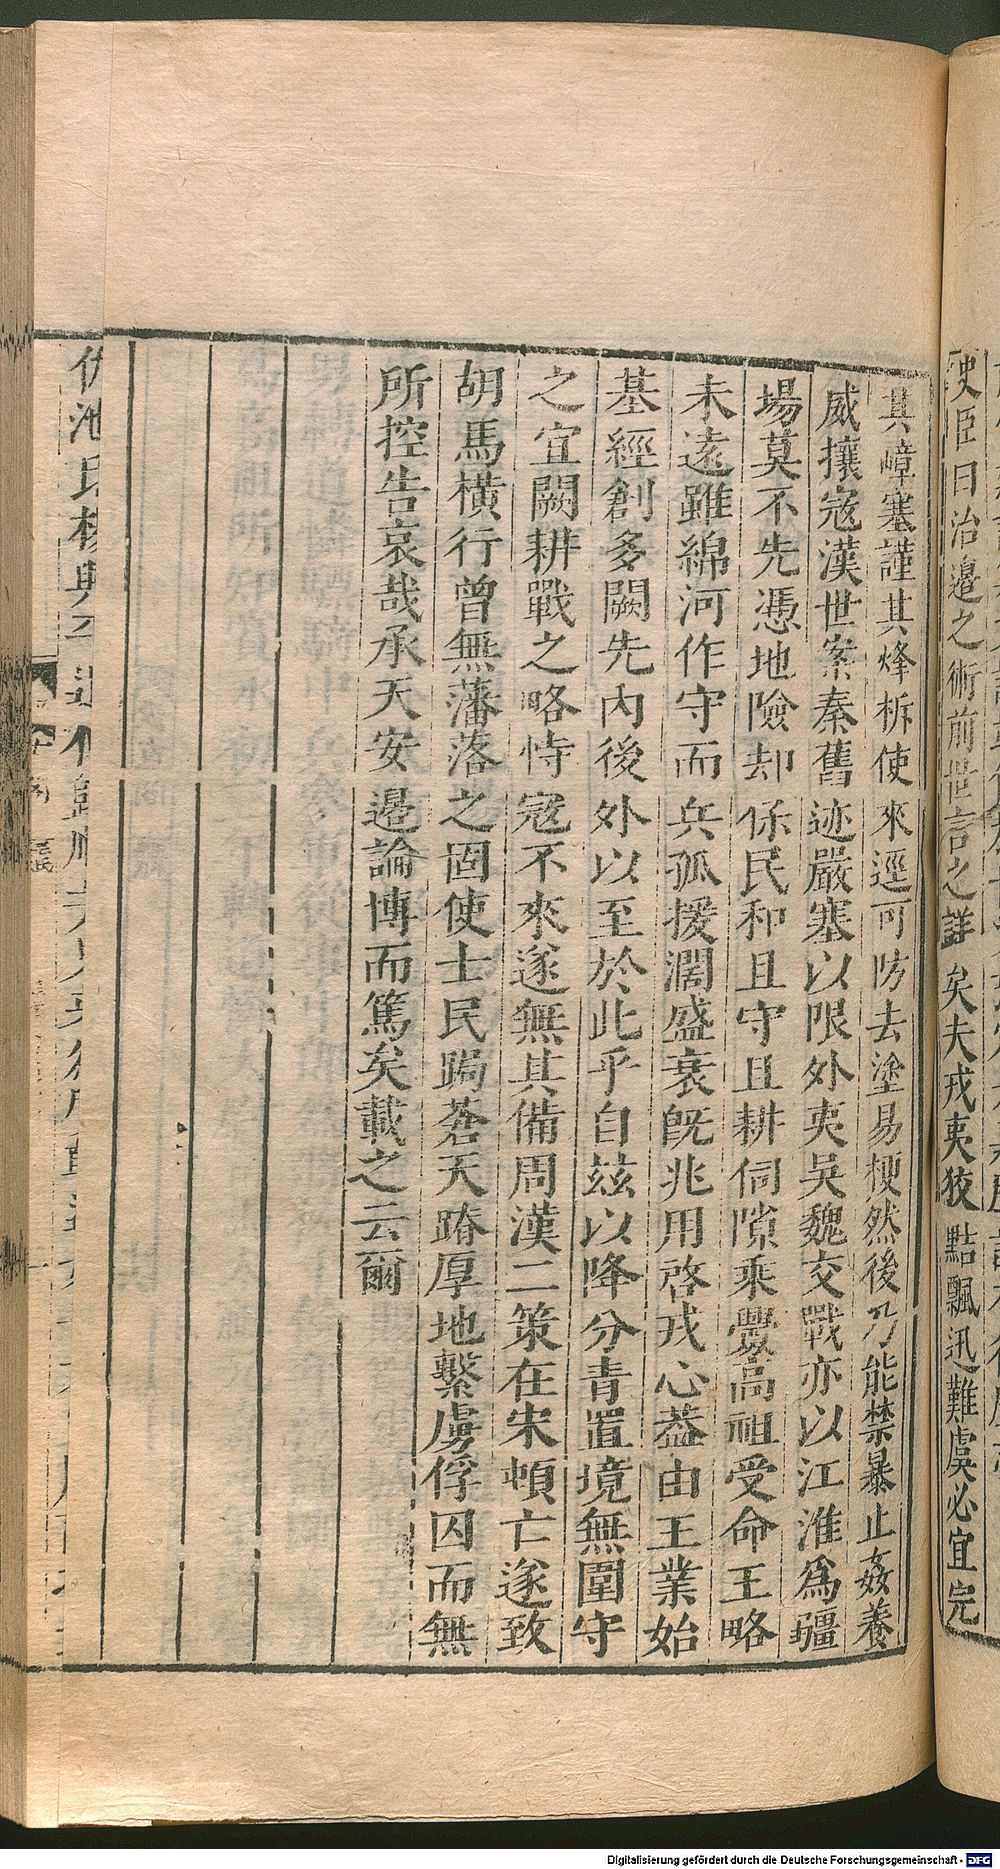 史臣曰治邊之術前世言之詳矣夫戎夷狡黠飄迅難虞必宜完
其嶂塞謹其烽柝使來逕可防去塗易梗然後乃能禁暴止姦養
威攘寇漢世案秦舊迹嚴塞以限外夷吳魏交戰亦以江淮爲疆
場莫不先憑地險却保民和且守且耕伺隙乘釁高祖受命王略
未遠雖綿河作守而兵孤援濶盛衰旣兆用啓戎心葢由王業始
基經創多闕先內後外以至於此乎自茲以降分青置境無圍守
之宜闕耕戰之略恃寇不來遂無其備周漢二策在宋頓亡遂致
胡馬橫行曾無藩落之固使士民跼蒼天蹐厚地繫虜俘囚而無
所控告哀哉承天安邊論博而篤矣載之云爾
Digitalisierung gefördert durch die Deutsche Forschungsgemeinschaft - DFG